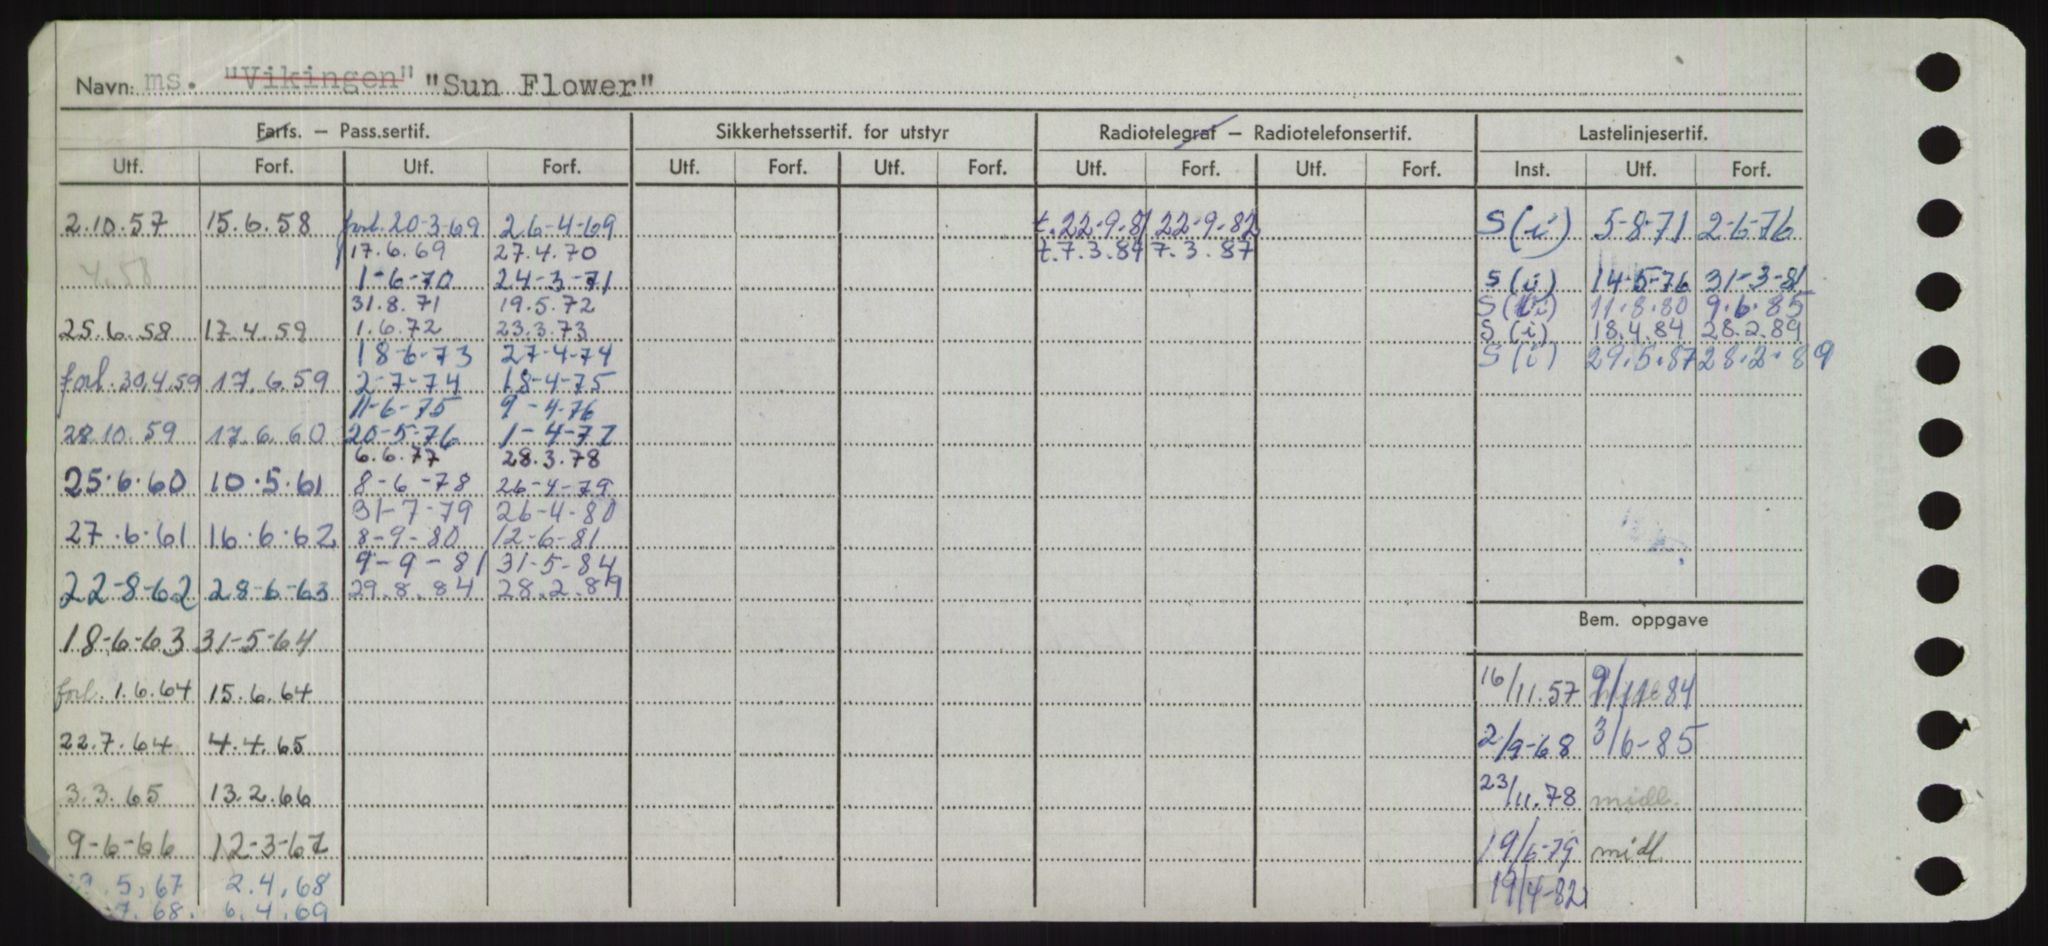 Navn: ms. "Vikingen" "Sun Flower"
Farts. – Pass.sertif. Sikkerhetssertif. for utstyr Radiotelegraf – Radiotelefonsertif. Lastelinjesertif.
Utf. Forf. Utf. Forf. Utf. Forf. Utf. Forf. Utf. Forf. Utf. Forf. Inst. Utf. Forf.
2.10.57 15.6.58 forl. 20-3-69 26-4-69 t. 22.9.81 22-9-82 S(i) 5-8-71 2-6-76
17.6.69 27.4.70 t. 7.3.84 7.3.87
4.58 1-6-70 24-3-71 S(i) 14-5-76 31-3-81
31.8.71 19.5.72 11.8.80 9.6.85
25.6.58 17.4.59 1.6.72 23.3.73 S(i) 18.4.84 28.2.89
18-6-73 27-4-74 S(i) 29.5.87 28.2.89
forl. 30.4.59 17.6.59 2-7-74 18-4-75
11-6-75 9-4-76
28.10.59 17.6.60 20-5-76 1-4-77
6.6.77 28.3.78
25.6.60 10.5.61 8-6-78 26-4-79
31-7-79 26-4-80
27.6.61 16.6.62 8-9-80 12-6-81
9-9-81 31-5-84
22-8-62 28-6-63 29.8.84 28.2.89
Bem. oppgave
18-6-63 31-5-64
forl. 1.6.64 15.6.64 16/11.57 9/11-84
22.7.64 4.4.65 2/9-68 3/6-85
3.3.65 13.2.66 23/11.78 midl.
9-6-66 12-3-67 19/6-79 midl.
5.67 2.4.68 19/4-82
7.68. 6.4.69